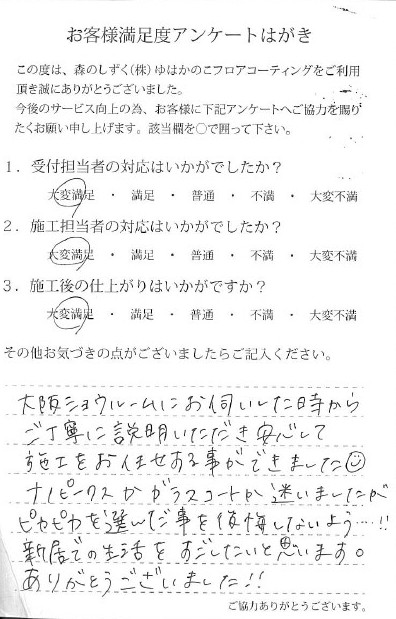 お客様満足度アンケートはがき
この度は、森のしずく(株)ゆはかのこフロアコーティングをご利用
頂き誠にありがとうございました。
今後のサービス向上の為、お客様に下記アンケートへご協力を賜り
たくお願い申し上げます。該当欄を○で囲って下さい。
1．受付担当者の対応はいかがでしたか？
大変満足 ・ 満足 ・ 普通 ・ 不満 ・ 大変不満
2．施工担当者の対応はいかがでしたか？
大変満足 ・ 満足 ・ 普通 ・ 不満 ・ 大変不満
3．施工後の仕上がりはいかがですか？
大変満足 ・ 満足 ・ 普通 ・ 不満 ・ 大変不満
その他お気づきの点がございましたらご記入ください。
大阪ショウルームにお伺いした時から
ご丁寧に説明いただき安心して
施工をお任せする事ができました☺
ナノピークスかガラスコートか迷いましたが
ピカピカを選んだ事を後悔しないよう…!!
新居での生活をすごしたいと思います。
ありがとうございました!!
ご協力ありがとうございます。